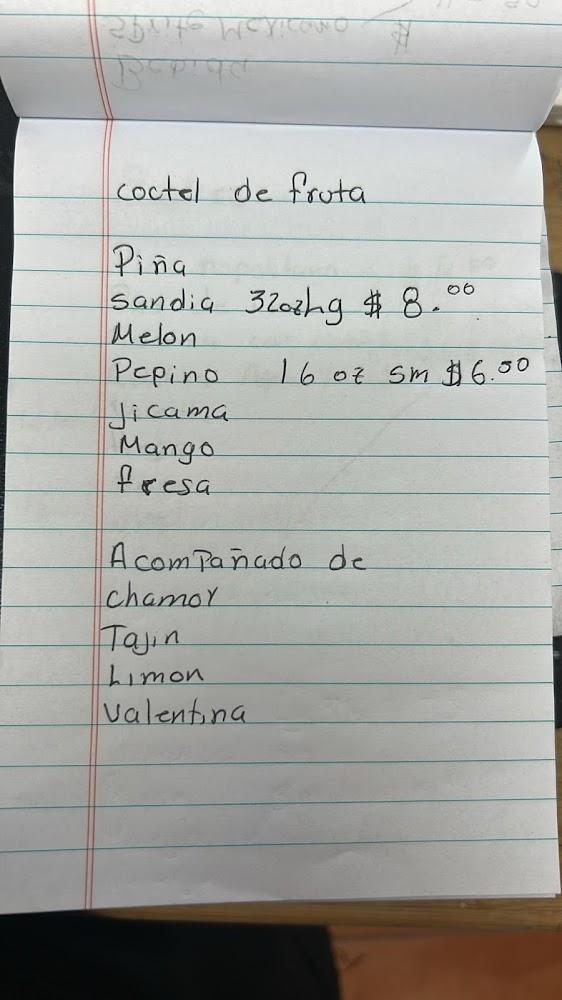 Sprite Mexicano $
Bebida
coctel de fruta
Piña
Sandia 32oz Lg $ 8.00
Melon
Pepino 16 oz sm $6.00
Jicama
Mango
fresa
Acompañado de
chamoy
Tajin
Limon
Valentina